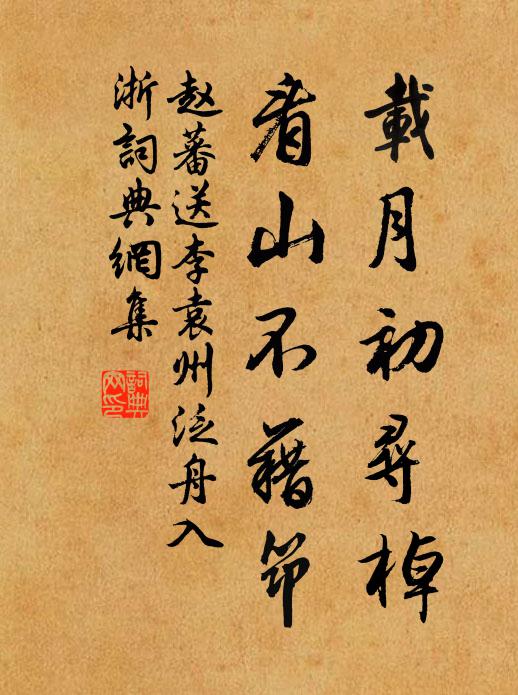 載月初尋棹
看山不藉筇
赵蕃送李袁州泛舟入
浙詞典網集
詞典
网印